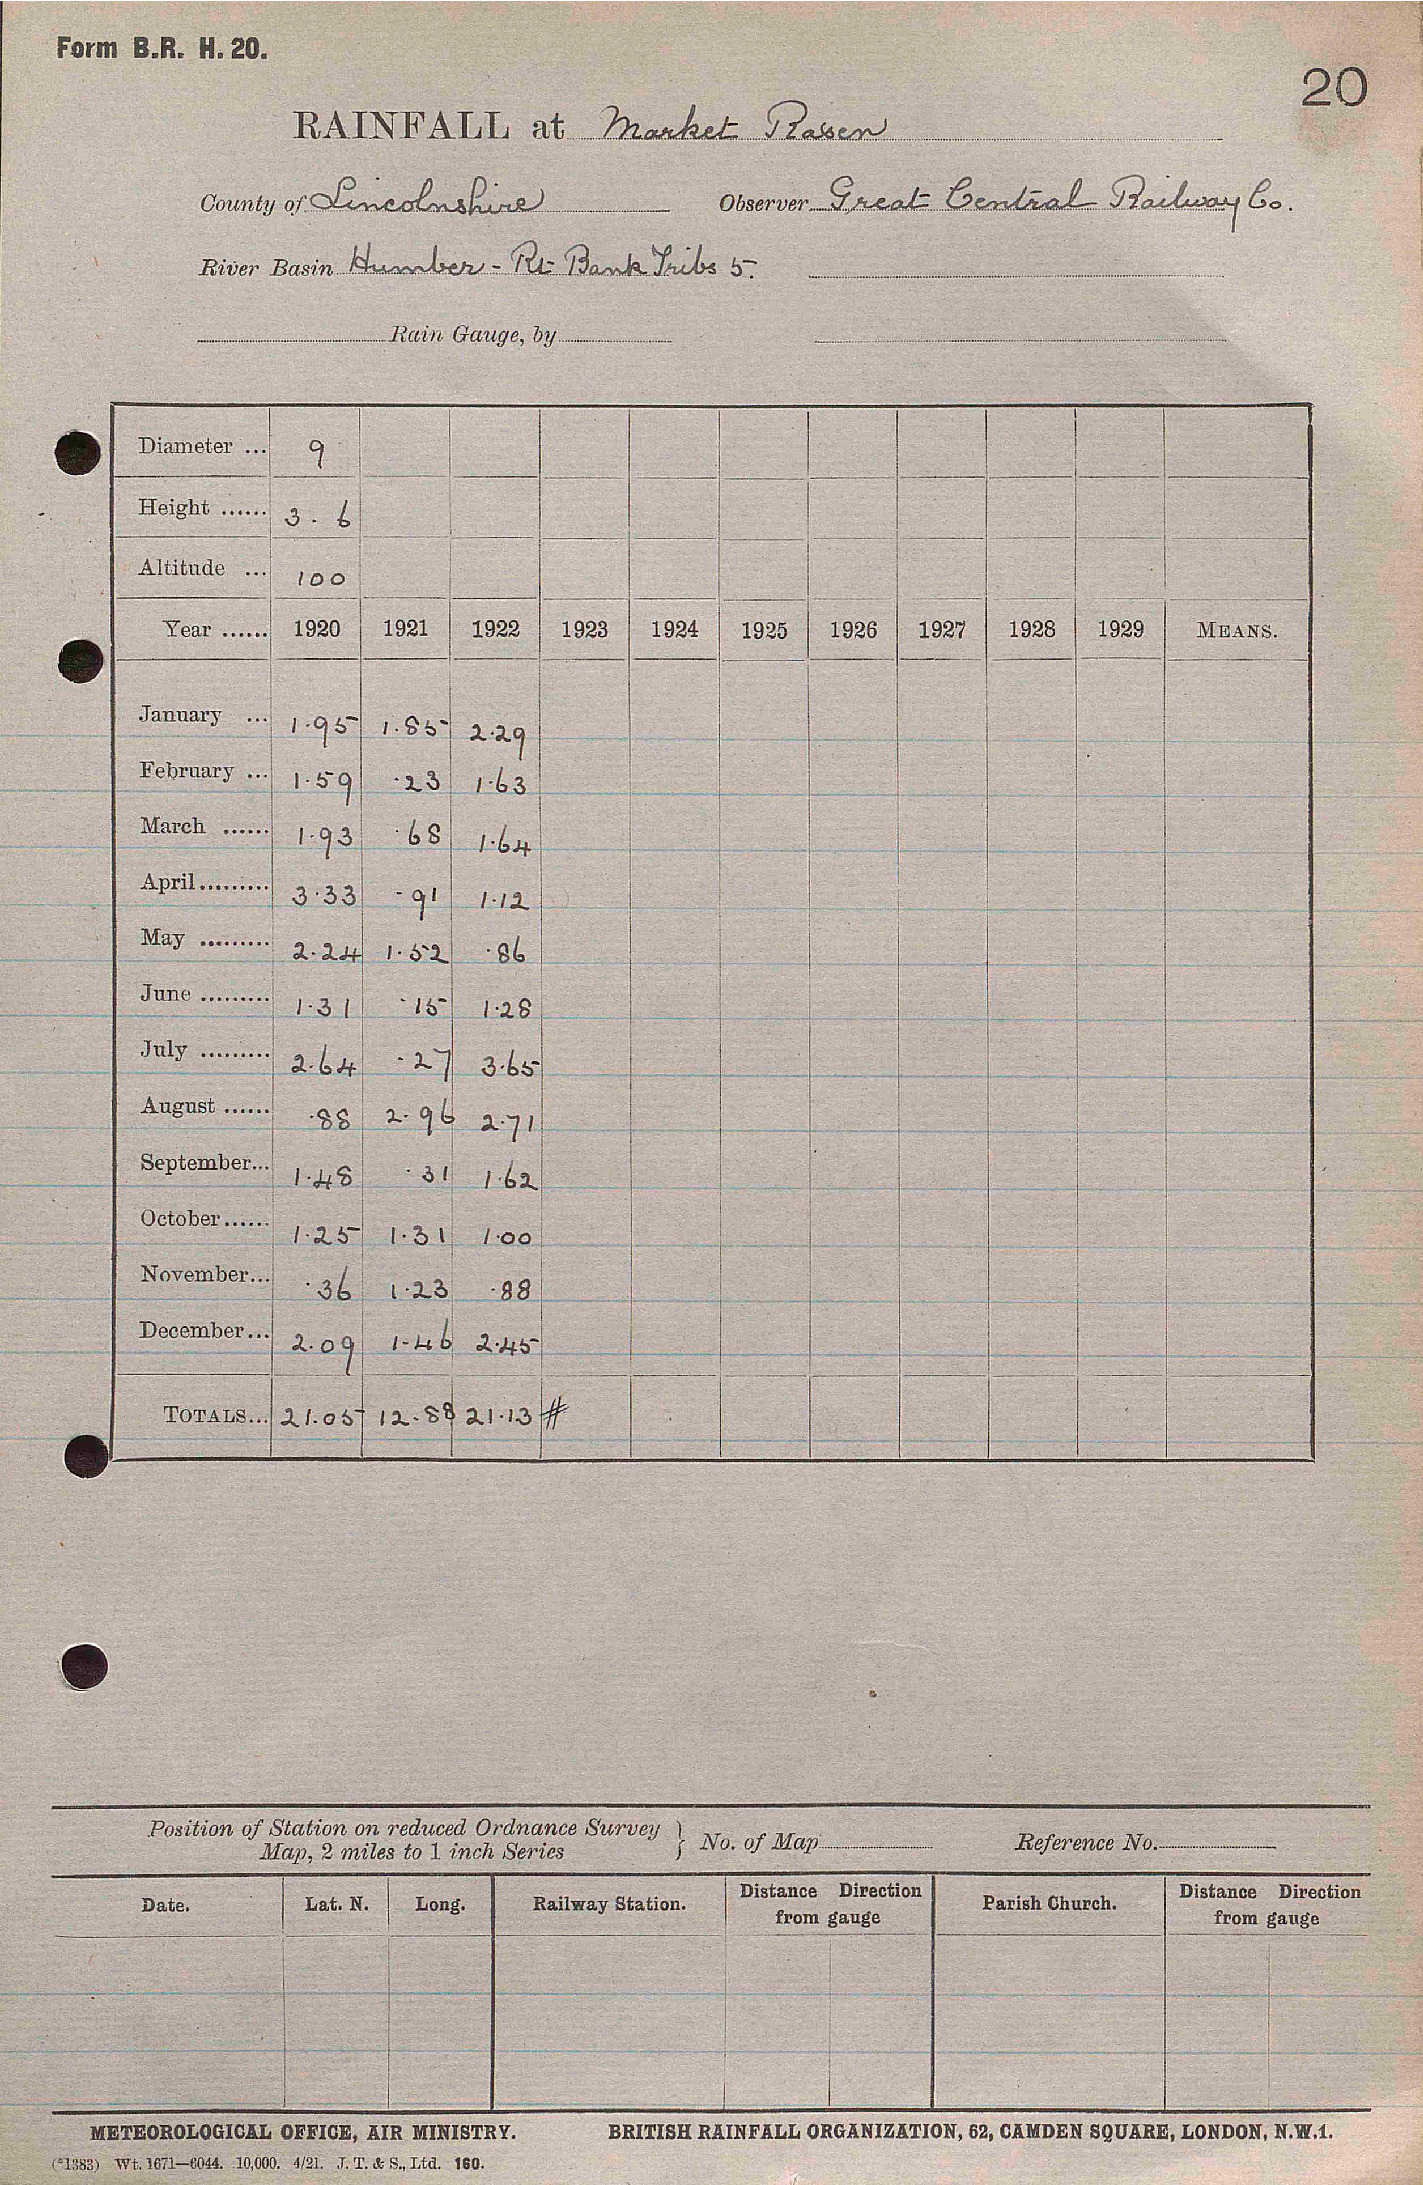 Form B.R. H. 20.
20
RAINFALL at Market Rasen
County of Lincolnshire Observer Great Central Railway Co.
River Basin Humber - Rt Bank Tribs 5.
Rain Gauge, by
Diameter ... 9
Height ...... 3. 6
Altitude ... 100
Year ...... 1920 1921 1922 1923 1924 1925 1926 1927 1928 1929 MEANS.
January ... 1.95 1.85 2.29
February ... 1.59 .23 1.63
March ...... 1.93 .68 1.64
April ......... 3.33 .91 1.12
May ......... 2.24 1.52 .86
June ......... 1.31 .15 1.28
July ......... 2.64 .27 3.65
August ...... .88 2.96 2.71
September... 1.48 .31 1.62
October ...... 1.25 1.31 1.00
November... .36 1.23 .88
December... 2.09 1.46 2.45
TOTALS... 21.05 12.88 21.13 #
Position of Station on reduced Ordnance Survey
Map, 2 miles to 1 inch Series } No. of Map Reference No.
Date. Lat. N. Long. Railway Station. Distance Direction from gauge Parish Church. Distance Direction from gauge
METEOROLOGICAL OFFICE, AIR MINISTRY. BRITISH RAINFALL ORGANIZATION, 62, CAMDEN SQUARE, LONDON, N.W.1.
(*1383) Wt. 1671—6044. 10,000. 4/21. J. T. & S., Ltd. 160.